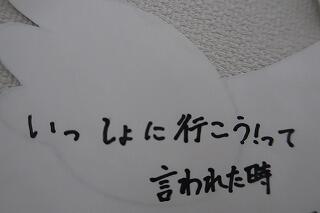 いっしょに行こう!って
言われた時